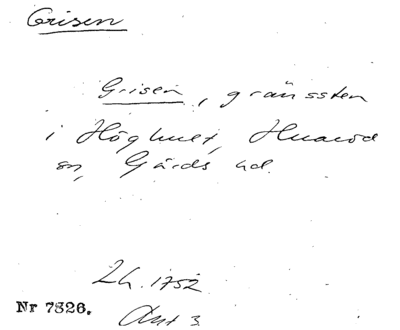 Grisen
Grisen, gränssten
i Höghult, Huaröd
sn, Gärds hd.
Lh. 1752
Nr 7826. Akt 3